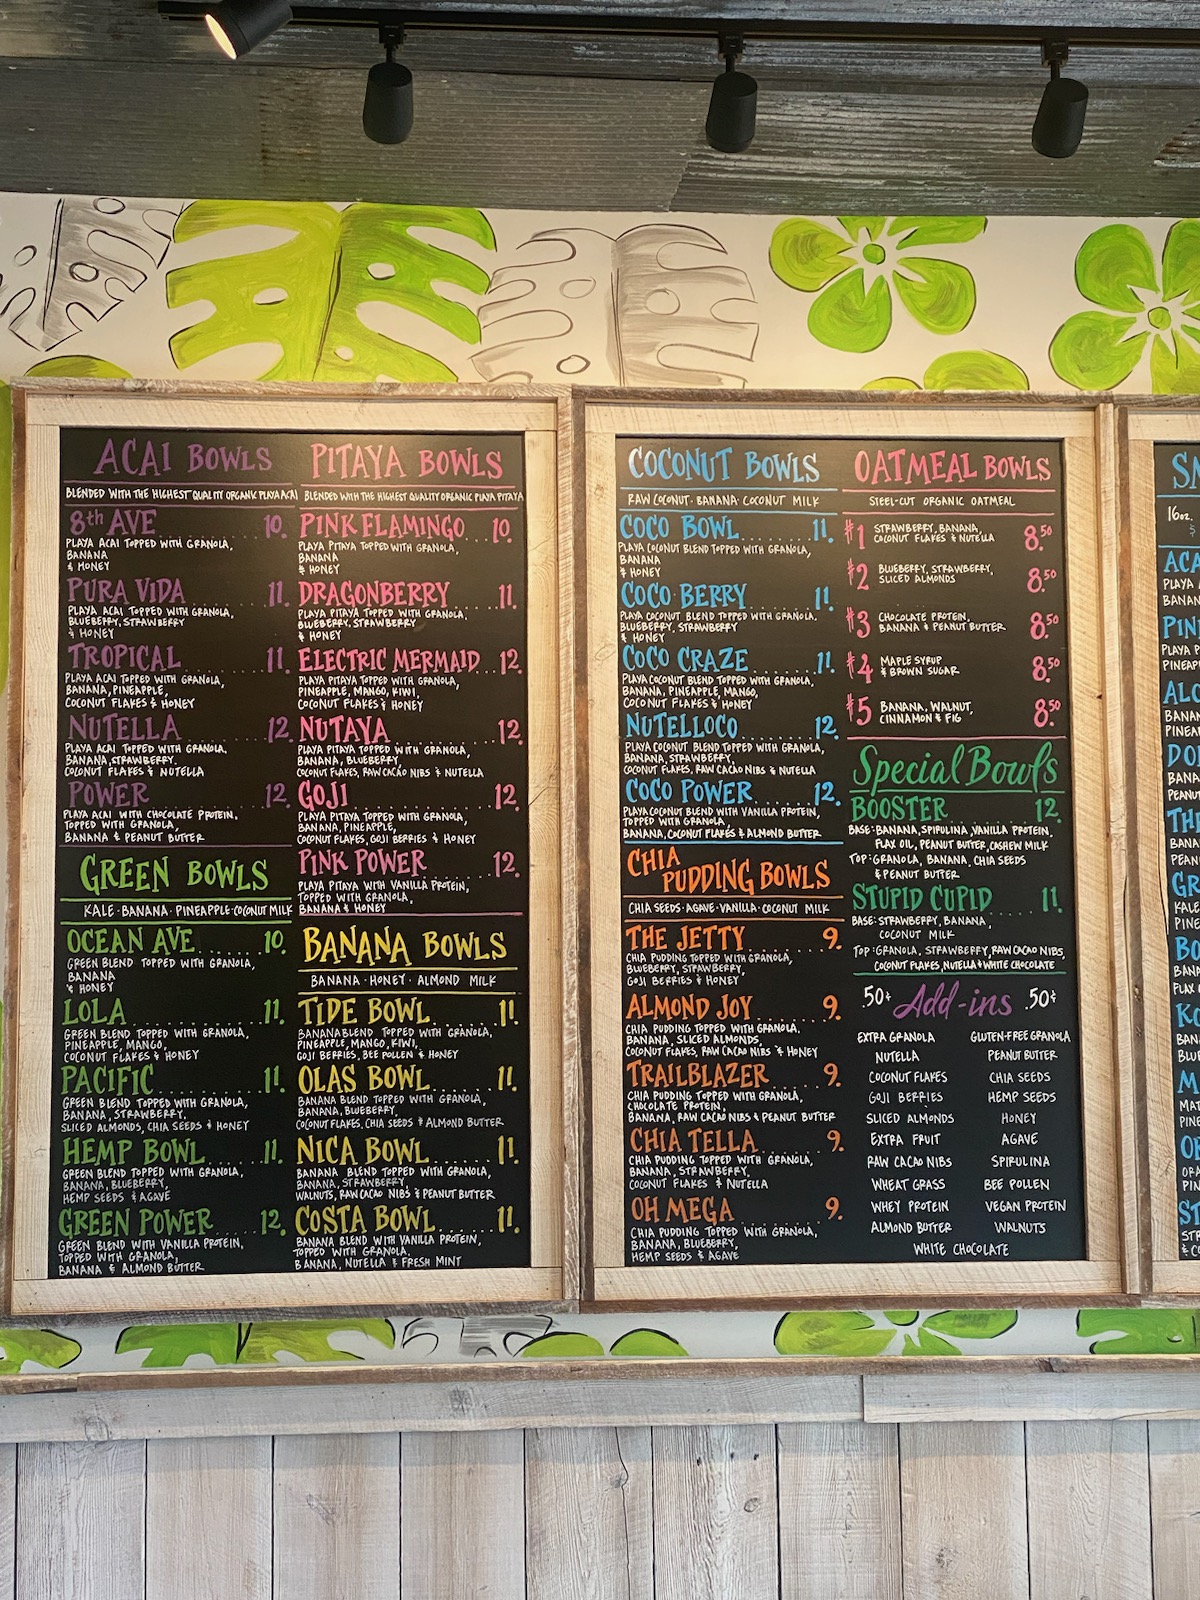 ACAI BOWLS
BLENDED WITH THE HIGHEST QUALITY ORGANIC PLAYA ACAI
8th AVE 10.
PLAYA ACAI TOPPED WITH GRANOLA,
BANANA
& HONEY
PURA VIDA 11.
PLAYA ACAI TOPPED WITH GRANOLA,
BLUEBERRY, STRAWBERRY
& HONEY
TROPICAL 11.
PLAYA ACAI TOPPED WITH GRANOLA,
BANANA, PINEAPPLE,
COCONUT FLAKES & HONEY
NUTELLA 12.
PLAYA ACAI TOPPED WITH GRANOLA,
BANANA, STRAWBERRY,
COCONUT FLAKES & NUTELLA
POWER 12.
PLAYA ACAI WITH CHOCOLATE PROTEIN,
TOPPED WITH GRANOLA,
BANANA & PEANUT BUTTER
GREEN BOWLS
KALE · BANANA · PINEAPPLE · COCONUT MILK
OCEAN AVE 10.
GREEN BLEND TOPPED WITH GRANOLA,
BANANA
& HONEY
LOLA 11.
GREEN BLEND TOPPED WITH GRANOLA,
PINEAPPLE, MANGO,
COCONUT FLAKES & HONEY
PACIFIC 11.
GREEN BLEND TOPPED WITH GRANOLA,
BANANA, STRAWBERRY,
SLICED ALMONDS, CHIA SEEDS & HONEY
HEMP BOWL 11.
GREEN BLEND TOPPED WITH GRANOLA,
BANANA, BLUEBERRY,
HEMP SEEDS & AGAVE
GREEN POWER 12.
GREEN BLEND WITH VANILLA PROTEIN,
TOPPED WITH GRANOLA,
BANANA & ALMOND BUTTER
PITAYA BOWLS
BLENDED WITH THE HIGHEST QUALITY ORGANIC PLAYA PITAYA
PINK FLAMINGO 10.
PLAYA PITAYA TOPPED WITH GRANOLA,
BANANA
& HONEY
DRAGONBERRY 11.
PLAYA PITAYA TOPPED WITH GRANOLA,
BLUEBERRY, STRAWBERRY
& HONEY
ELECTRIC MERMAID 12.
PLAYA PITAYA TOPPED WITH GRANOLA,
PINEAPPLE, MANGO, KIWI,
COCONUT FLAKES & HONEY
NUTAYA 12.
PLAYA PITAYA TOPPED WITH GRANOLA,
BANANA, BLUEBERRY,
COCONUT FLAKES, RAW CACAO NIBS & NUTELLA
GOJI 12.
PLAYA PITAYA TOPPED WITH GRANOLA,
BANANA, PINEAPPLE,
COCONUT FLAKES, GOJI BERRIES & HONEY
PINK POWER 12.
PLAYA PITAYA WITH VANILLA PROTEIN,
TOPPED WITH GRANOLA,
BANANA & HONEY
BANANA BOWLS
BANANA · HONEY · ALMOND MILK
TIDE BOWL 11.
BANANA BLEND TOPPED WITH GRANOLA,
PINEAPPLE, MANGO, KIWI,
GOJI BERRIES, BEE POLLEN & HONEY
OLAS BOWL 11.
BANANA BLEND TOPPED WITH GRANOLA,
BANANA, BLUEBERRY,
COCONUT FLAKES, CHIA SEEDS & ALMOND BUTTER
NICA BOWL 11.
BANANA BLEND TOPPED WITH GRANOLA,
BANANA, STRAWBERRY,
WALNUTS, RAW CACAO NIBS & PEANUT BUTTER
COSTA BOWL 11.
BANANA BLEND WITH VANILLA PROTEIN,
TOPPED WITH GRANOLA,
BANANA, NUTELLA & FRESH MINT
COCONUT BOWLS
RAW COCONUT · BANANA · COCONUT MILK
COCO BOWL 11.
PLAYA COCONUT BLEND TOPPED WITH GRANOLA,
BANANA
& HONEY
COCO BERRY 11.
PLAYA COCONUT BLEND TOPPED WITH GRANOLA,
BLUEBERRY, STRAWBERRY
& HONEY
COCO CRAZE 11.
PLAYA COCONUT BLEND TOPPED WITH GRANOLA,
BANANA, PINEAPPLE, MANGO,
COCONUT FLAKES & HONEY
NUTELLOCO 12.
PLAYA COCONUT BLEND TOPPED WITH GRANOLA,
BANANA, STRAWBERRY,
COCONUT FLAKES, RAW CACAO NIBS & NUTELLA
COCO POWER 12.
PLAYA COCONUT BLEND WITH VANILLA PROTEIN,
TOPPED WITH GRANOLA,
BANANA, COCONUT FLAKES & ALMOND BUTTER
CHIA
PUDDING BOWLS
CHIA SEEDS · AGAVE · VANILLA · COCONUT MILK
THE JETTY 9.
CHIA PUDDING TOPPED WITH GRANOLA,
BLUEBERRY, STRAWBERRY,
GOJI BERRIES & HONEY
ALMOND JOY 9.
CHIA PUDDING TOPPED WITH GRANOLA,
BANANA, SLICED ALMONDS,
COCONUT FLAKES, RAW CACAO NIBS & HONEY
TRAILBLAZER 9.
CHIA PUDDING TOPPED WITH GRANOLA,
CHOCOLATE PROTEIN,
BANANA, RAW CACAO NIBS & PEANUT BUTTER
CHIA TELLA 9.
CHIA PUDDING TOPPED WITH GRANOLA,
BANANA, STRAWBERRY,
COCONUT FLAKES & NUTELLA
OH MEGA 9.
CHIA PUDDING TOPPED WITH GRANOLA,
BANANA, BLUEBERRY,
HEMP SEEDS & AGAVE
OATMEAL BOWLS
STEEL-CUT ORGANIC OATMEAL
#1 STRAWBERRY, BANANA,
COCONUT FLAKES & NUTELLA 8.50
#2 BLUEBERRY, STRAWBERRY,
SLICED ALMONDS 8.50
#3 CHOCOLATE PROTEIN,
BANANA & PEANUT BUTTER 8.50
#4 MAPLE SYRUP
& BROWN SUGAR 8.50
#5 BANANA, WALNUT,
CINNAMON & FIG 8.50
Special Bowls
BOOSTER 12.
BASE: BANANA, SPIRULINA, VANILLA PROTEIN,
FLAX OIL, PEANUT BUTTER, CASHEW MILK
TOP: GRANOLA, BANANA, CHIA SEEDS
& PEANUT BUTTER
STUPID CUPID 11.
BASE: STRAWBERRY, BANANA,
COCONUT MILK
TOP: GRANOLA, STRAWBERRY, RAW CACAO NIBS,
COCONUT FLAKES, NUTELLA & WHITE CHOCOLATE
.50¢ Add-ins .50¢
EXTRA GRANOLA GLUTEN-FREE GRANOLA
NUTELLA PEANUT BUTTER
COCONUT FLAKES CHIA SEEDS
GOJI BERRIES HEMP SEEDS
SLICED ALMONDS HONEY
EXTRA FRUIT AGAVE
RAW CACAO NIBS SPIRULINA
WHEAT GRASS BEE POLLEN
WHEY PROTEIN VEGAN PROTEIN
ALMOND BUTTER WALNUTS
WHITE CHOCOLATE
16oz.